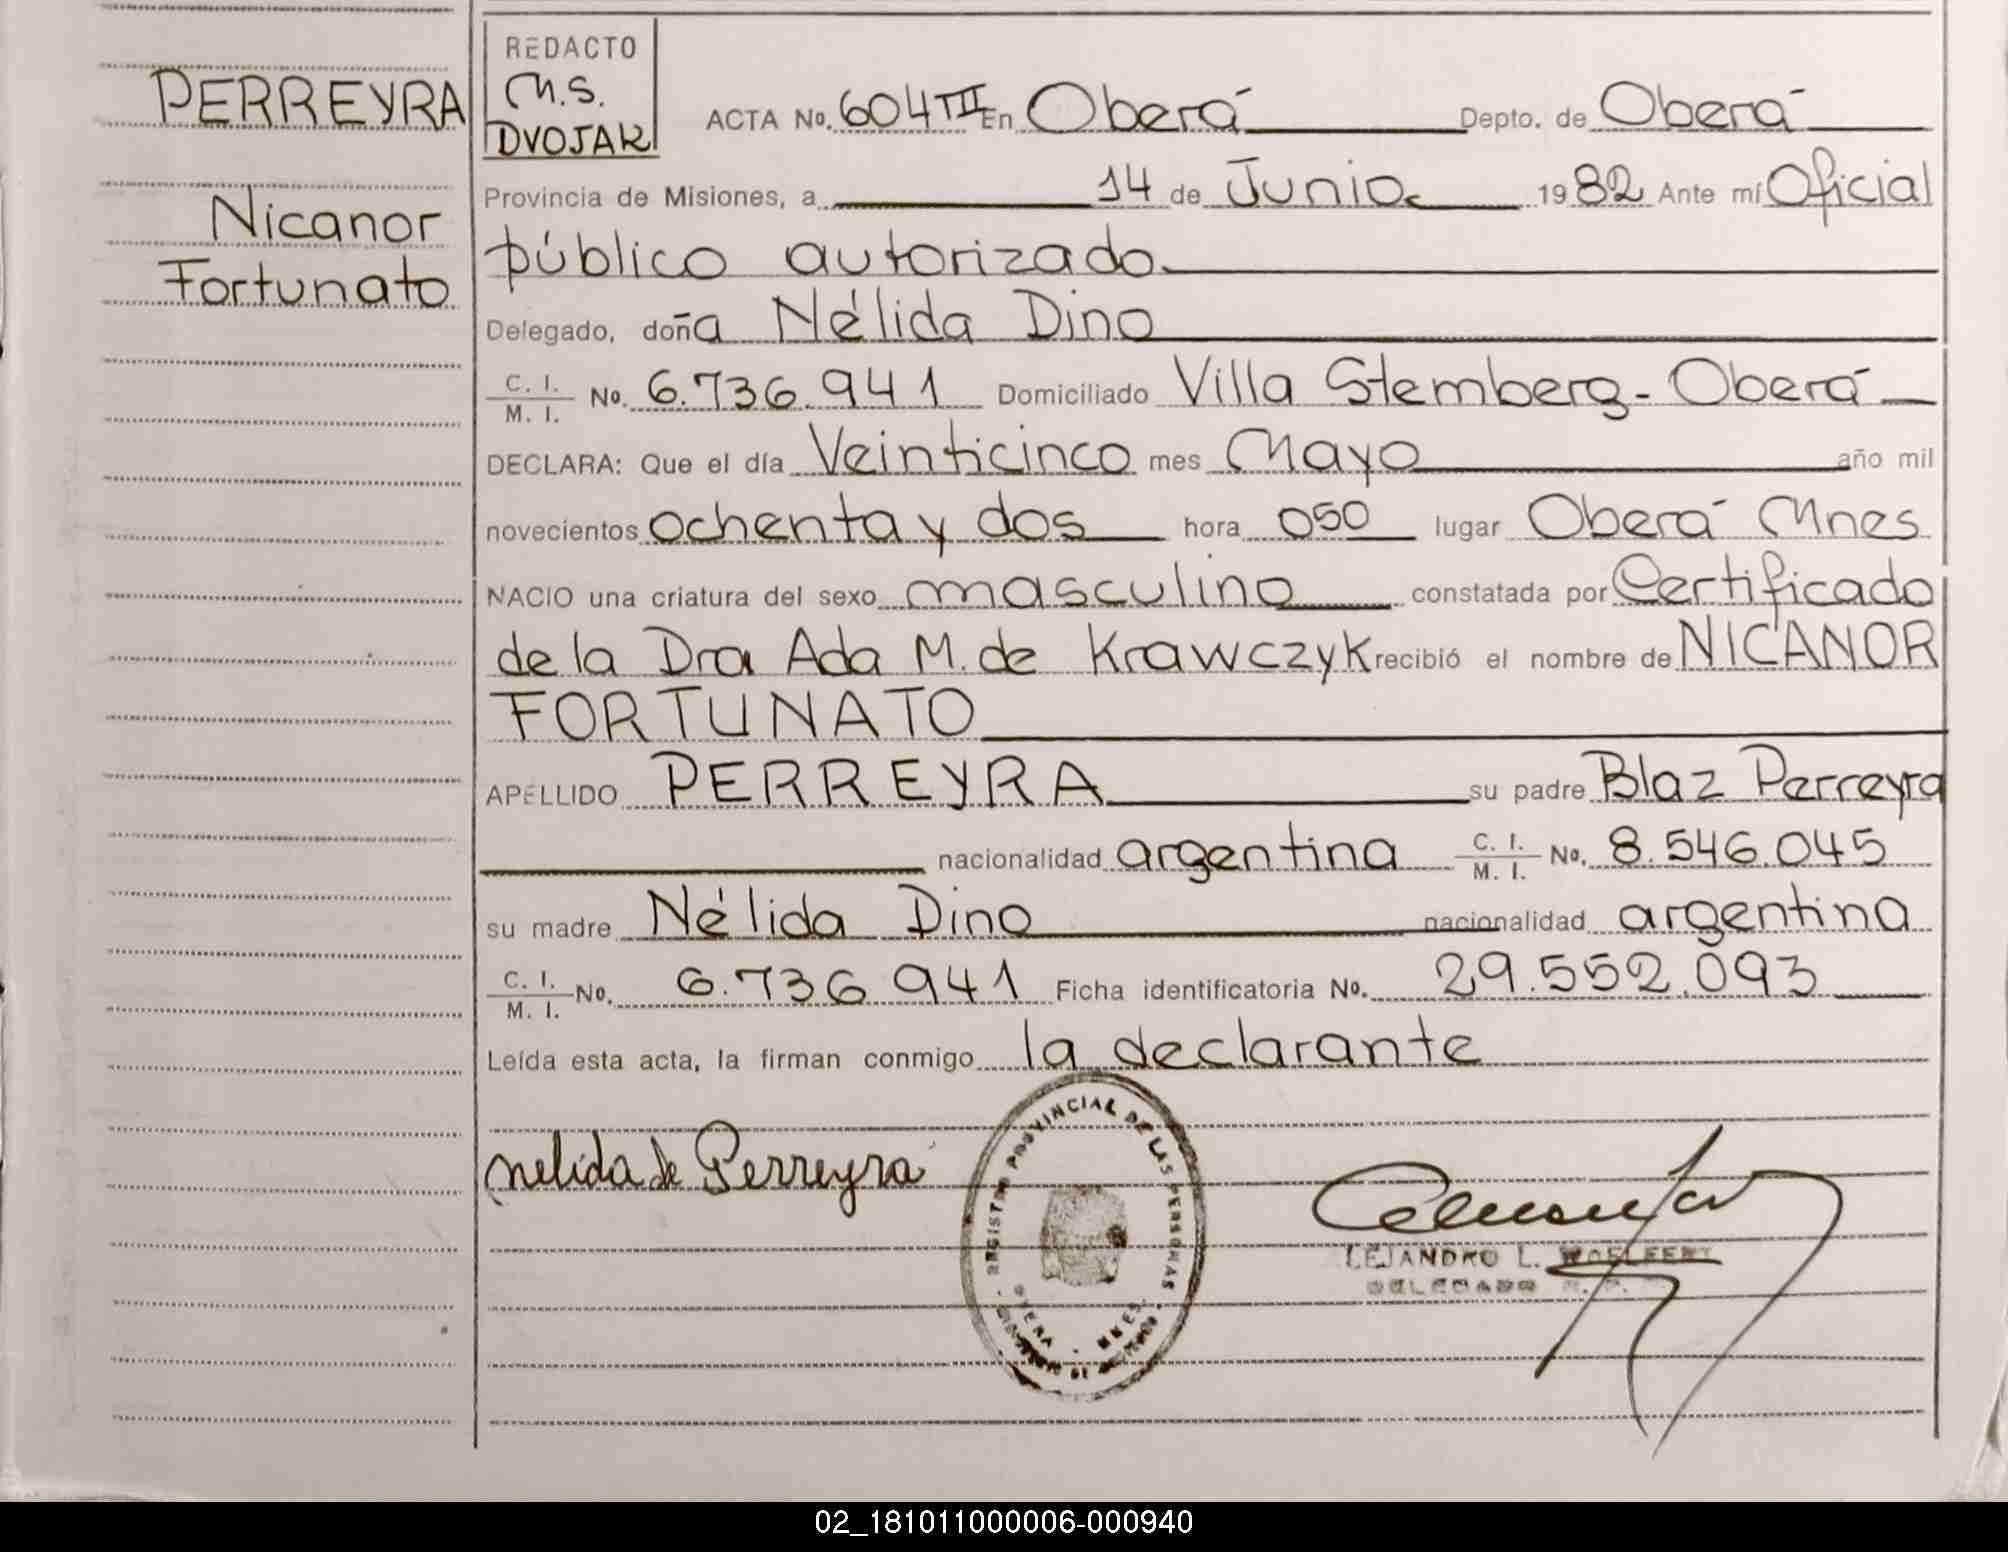 PERREYRA
Nicanor
Fortunato
REDACTO
M.S.
DVOJAK
ACTA No. 604 TII En Oberá Depto. de Oberá
Provincia de Misiones, a 14 de Junio 1982 Ante mí Oficial
público autorizado
Delegado, doña Nélida Dino
C. I. / M. I. No. 6.736.941 Domiciliado Villa Stemberg - Oberá
DECLARA: Que el día Veinticinco mes Mayo año mil
novecientos ochenta y dos hora 050 lugar Oberá Mnes
NACIO una criatura del sexo masculino constatada por Certificado
de la Dra Ada M. de Krawczyk recibió el nombre de NICANOR
FORTUNATO
APELLIDO PERREYRA su padre Blaz Perreyra
nacionalidad argentina C. I. / M. I. No. 8.546.045
su madre Nélida Dino nacionalidad argentina
C. I. / M. I. No. 6.736 941 Ficha identificatoria No. 29.552.093
Leída esta acta, la firman conmigo la declarante
nelida de Perreyra
REGISTRO PROVINCIAL DE LAS PERSONAS
OBERA - MNES.
LEJANDRO L.
DELEGADO
02_181011000006-000940